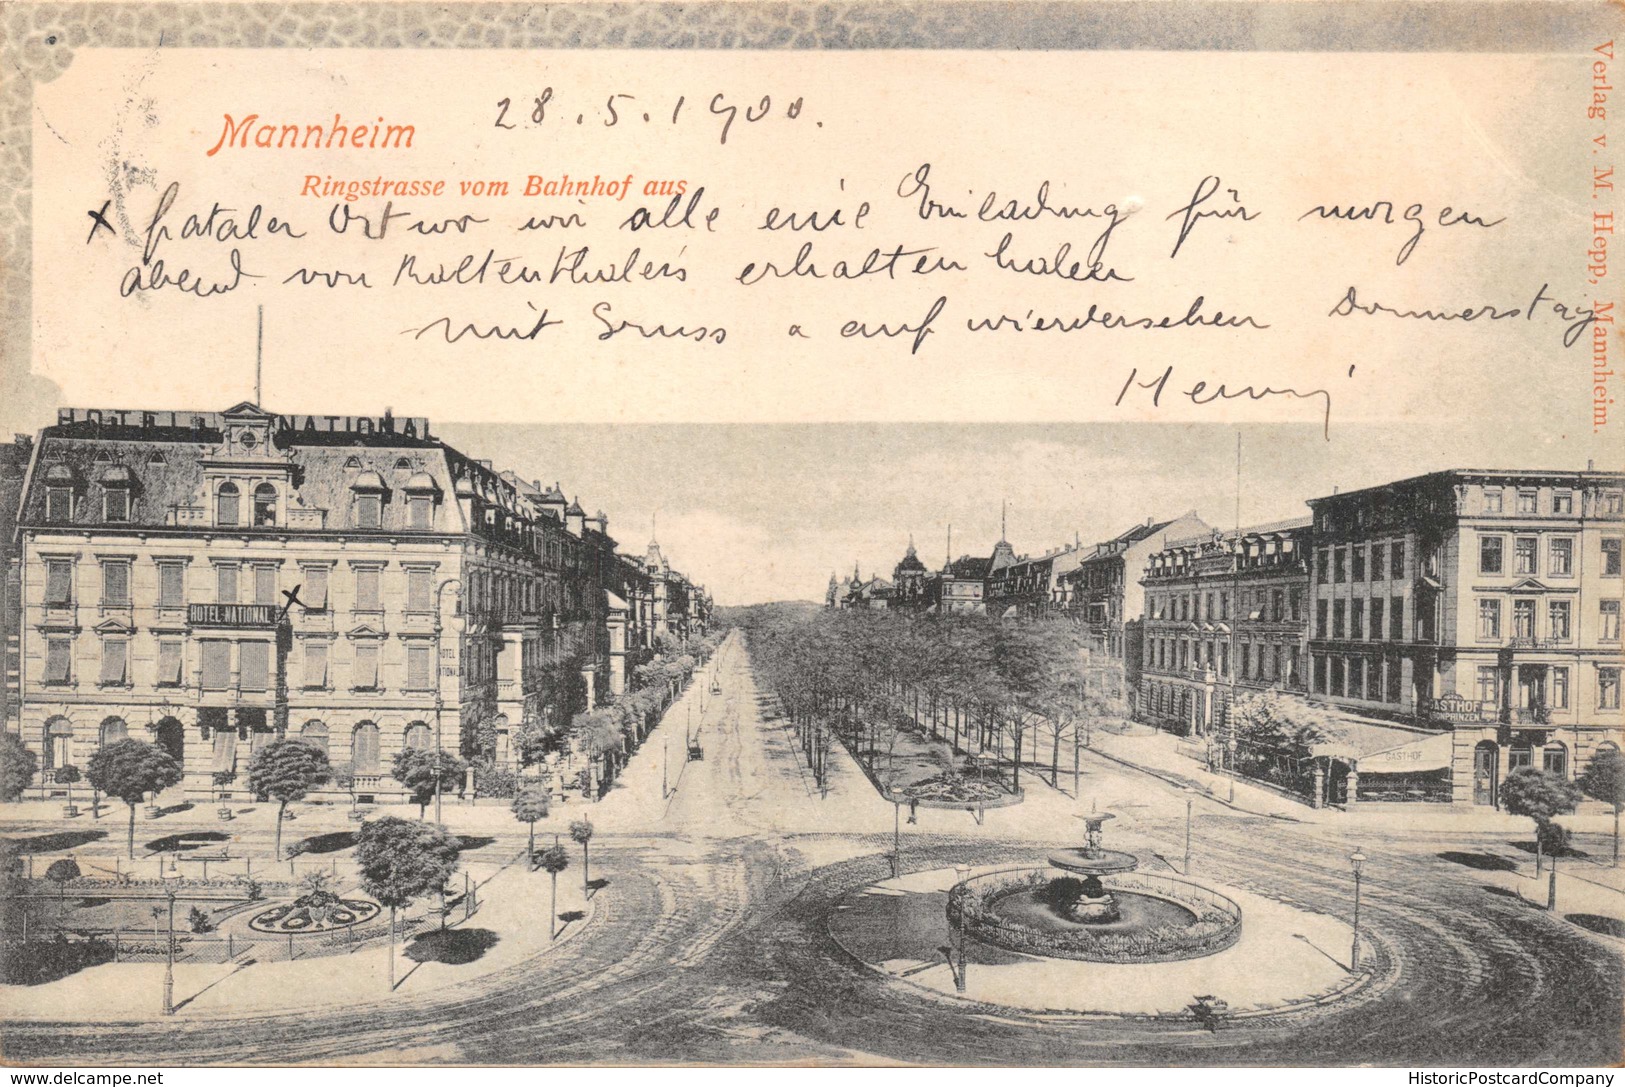 Mannheim
28.5.1900.
Ringstrasse vom Bahnhof aus
x fataler Ort wo wir alle eine Einladung für morgen
abend von Kaltenthalers erhalten haben
mit Gruss a auf wierdersehen Donnerstag
Henry
Verlag v. M. Hepp, Mannheim.
HOTEL NATIONAL
HOTEL-NATIONAL
HOTEL
GASTHOF
PRINZEN
GASTHOF
delcampe.net
HistoricPostcardCompany